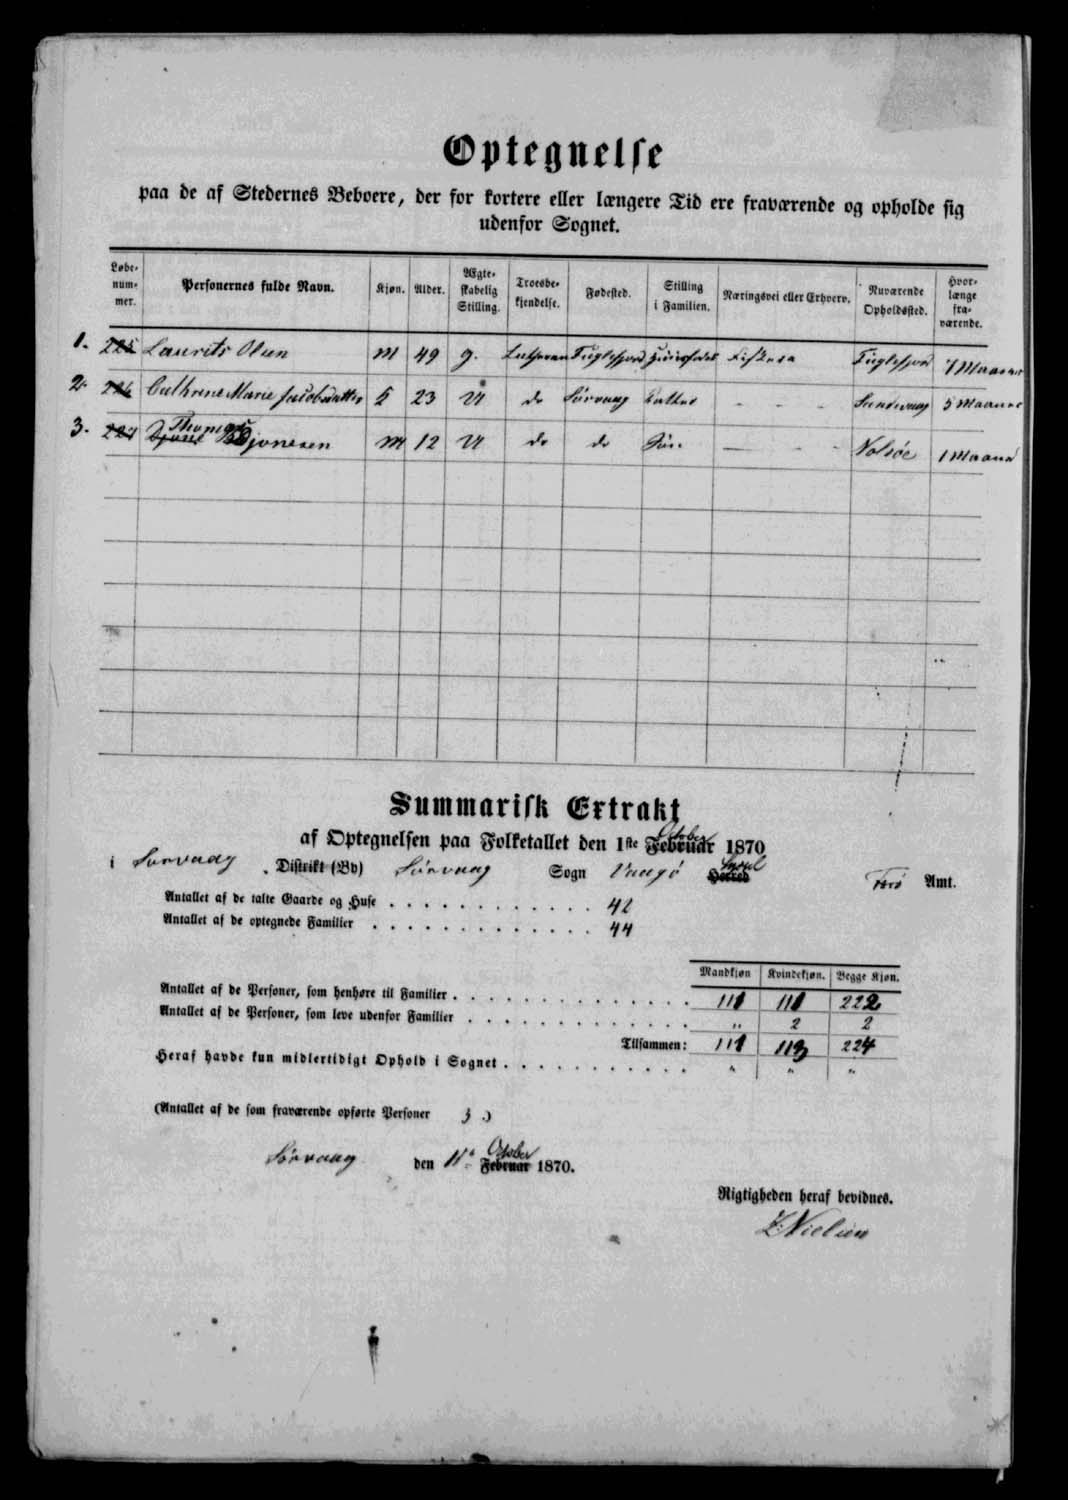 Optegnelse
paa de af Stedernes Beboere, der for kortere eller længere Tid ere fraværende og opholde sig
udenfor Sognet.
Løbe-nummer. Personernes fulde Navn. Kjøn. Alder. Ægteskabelig Stilling. Troesbekjendelse. Fødested. Stilling i Familien. Næringsvei eller Erhverv. Nuværende Opholdssted. Hvorlænge fraværende.
1. 225 Laurits Olsen M 49 g. Lutheran Fuglefjord Huusfader Fuglefjord 7 Maaner
2. 226 Cathrine Marie Jacobsdatter 23 U do Sørvaag Datter - - - Sandevaag 5 Maaner
3. 227 Thomas Djonesen M 12 U do do Søn - - - Nolsøe 1 Maaned
Summarisk Extrakt
af Optegnelsen paa Folketallet den 1ste Februar October 1870
i Sørvaag Distrikt (By) Sørvaag Sogn Vaagø Herred Syssel Færø Amt.
Antallet af de talte Gaarde og Huse . . . . . . . . . . . . 42
Antallet af de optegnede Familier . . . . . . . . . . . . . 44
Mandkjøn Kvindekjøn. Begge Kjøn.
Antallet af de Personer, som henhøre til Familier . . . . . . . . . . . . . . 111 111 222
Antallet af de Personer, som leve udenfor Familier . . . . . . . . . . . . . „ 2 2
Tilsammen: 111 113 224
Heraf havde kun midlertidigt Ophold i Sognet . . . . . . . . . . . „ „ „
(Antallet af de som fraværende opførte Personer 3 .)
Sørvaag den 11te Februar October 1870.
Rigtigheden heraf bevidnes.
Z. Nielsen